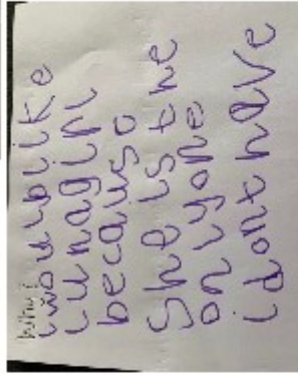 Why i
i would like
Lunagirl
because
She is the
only one
i dont have